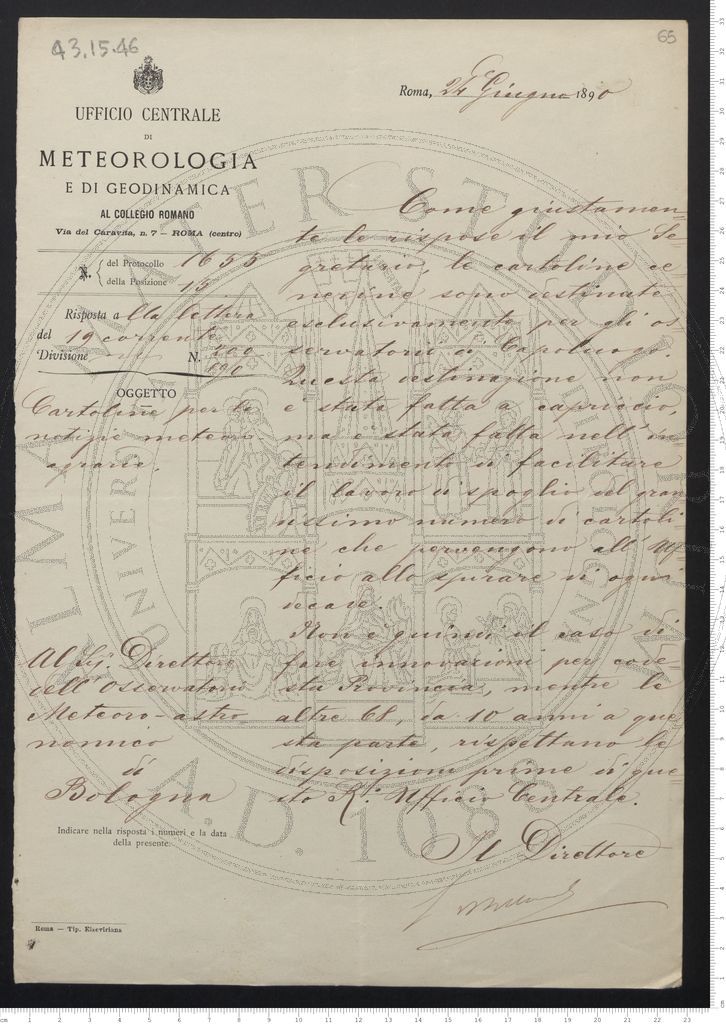 43.15.46
65
UFFICIO CENTRALE
DI
METEOROLOGIA
E DI GEODINAMICA
AL COLLEGIO ROMANO
Via del Caravita, n. 7 – ROMA (centro)
Roma, 24 Giugno 1890
N. del Protocollo 1655
della Posizione 15
Risposta alla lettera
del 19 corrente
Divisione N.
690
OGGETTO
Cartoline per le
notizie meteoro
agrarie.
Al Sig. Direttore
dell'Osservatorio
Meteoro-astro-
nomico
di
Bologna
Indicare nella risposta i numeri e la data
della presente.
Come giustamen=
te le rispose il mio Se=
gretario, le cartoline ce=
nerine sono destinate
esclusivamente per gli os=
servatorii di Capoluogo.
Questa destinazione non
è stata fatta a capriccio,
ma è stata fatta nell'in
tendimento di facilitare
il lavoro di spoglio del gran
dissimo numero di cartoli=
ne che pervengono all'Uf
ficio allo spirare di ogni
decade.
Non è quindi il caso di
fare innovazioni per code=
sta Provincia, mentre le
altre 68, da 10 anni a que
sta parte, rispettano le
disposizioni prime di que=
sto R. Ufficio Centrale.
Il Direttore
Roma — Tip. Elzeviriana
ALMA MATER STUDIORUM
A.D. 1088